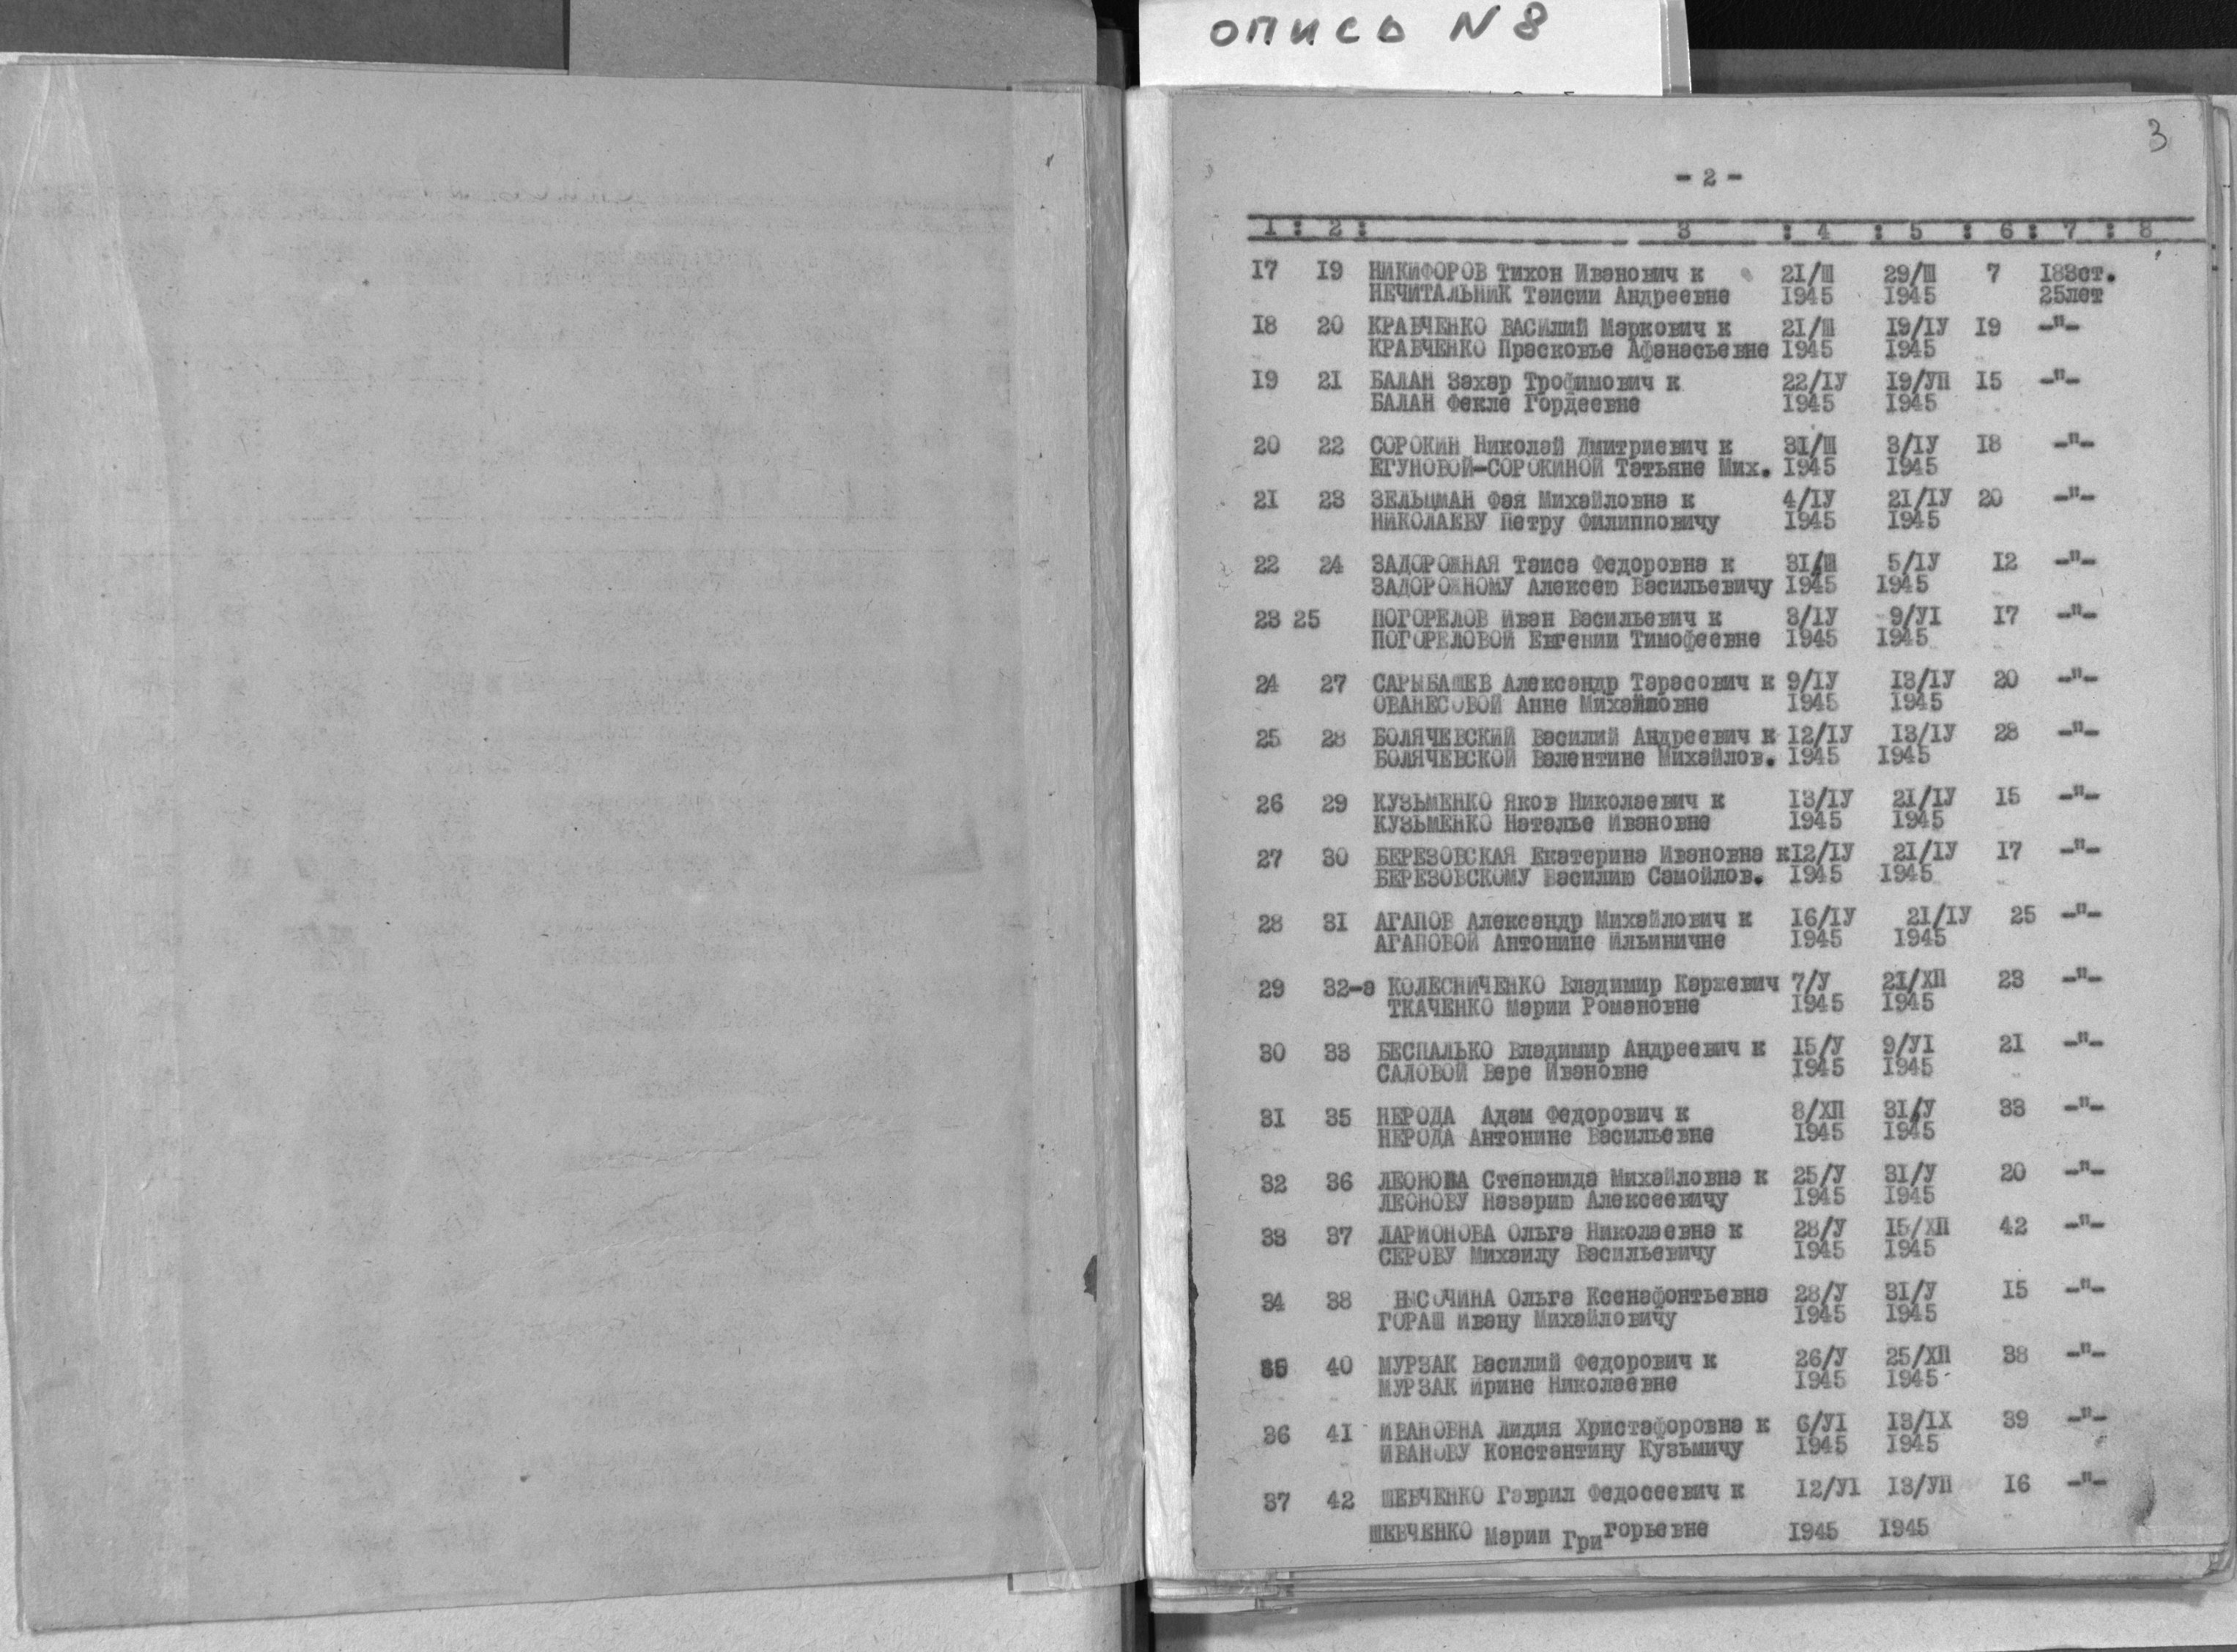 опись N 8
3
- 2 -
1 : 2 : 3 : 4 : 5 : 6 : 7 : 8
17 19 НИКИФОРОВ Тихон Иванович к 21/Ш 29/Ш 7 183ст.
НЕЧИТАЛЬНИК Таисии Андреевне 1945 1945 25лет
18 20 КРАВЧЕНКО ВАСИлий Маркович к 21/Ш 19/IУ 19 -"-
КРАВЧЕНКО Прасковье Афанасьевне 1945 1945
19 21 БАЛАН Захар Трофимович к 22/IУ 19/УП 15 -"-
БАЛАН Фекле Гордеевне 1945 1945
20 22 СОРОКИН Николай Дмитриевич к 31/Ш 3/IУ 18 -"-
ЕГУНОВОЙ-СОРОКИНОЙ Татьяне Мих. 1945 1945
21 23 ЗЕЛЬЦМАН Фая Михайловна к 4/IУ 21/IУ 20 -"-
НИКОЛАЕВУ Петру Филипповичу 1945 1945
22 24 ЗАДОРОЖНАЯ Таиса Федоровна к 31/Ш 5/IУ 12 -"-
ЗАДОРОЖНОМУ Алексею Васильевичу 1945 1945
23 25 ПОГОРЕЛОВ Иван Васильевич к 3/IУ 9/УI 17 -"-
ПОГОРЕЛОВОЙ Евгении Тимофеевне 1945 1945
24 27 САРЫБАШЕВ Александр Тарасович к 9/IУ 13/IУ 20 -"-
ОВАНЕСОВОЙ Анне Михайловне 1945 1945
25 28 БОЛЯЧЕВСКИЙ Василий Андреевич к 12/IУ 13/IУ 28 -"-
БОЛЯЧЕВСКОЙ Валентине Михайлов. 1945 1945
26 29 КУЗЬМЕНКО Яков Николаевич к 13/IУ 21/IУ 15 -"-
КУЗЬМЕНКО Наталье Ивановне 1945 1945
27 30 БЕРЕЗОВСКАЯ Екатерина Ивановна к12/IУ 21/IУ 17 -"-
БЕРЕЗОВСКОМУ Василию Самойлов. 1945 1945
28 31 АГАПОВ Александр Михайлович к 16/IУ 21/IУ 25 -"-
АГАПОВОЙ Антонине Ильиничне 1945 1945
29 32-а КОЛЕСНИЧЕНКО Владимир Каржевич 7/У 21/ХП 23 -"-
ТКАЧЕНКО Марии Романовне 1945 1945
30 33 БЕСПАЛЬКО Владимир Андреевич к 15/У 9/УI 21 -"-
САЛОВОЙ Вере Ивановне 1945 1945
31 35 НЕРОДА Адам Федорович к 8/ХП 31/У 33 -"-
НЕРОДА Антонине Васильевне 1945 1945
32 36 ЛЕОНОВА Степанида Михайловна к 25/У 31/У 20 -"-
ЛЕОНОВУ Назарию Алексеевичу 1945 1945
33 37 ЛАРИОНОВА Ольга Николаевна к 28/У 15/ХП 42 -"-
СЕРОВУ Михаилу Васильевичу 1945 1945
34 38 ВЫСОЧИНА Ольга Ксенафонтьевна 28/У 31/У 15 -"-
ГОРАШ Ивану Михайловичу 1945 1945
35 40 МУРЗАК Василий Федорович к 26/У 25/ХП 38 -"-
МУРЗАК Ирине Николаевне 1945 1945
36 41 ИВАНОВНА Лидия Христафоровна к 6/УI 13/IХ 39 -"-
ИВАНОВУ Константину Кузьмичу 1945 1945
37 42 ШЕВЧЕНКО Гаврил Федосеевич к 12/УI 13/УП 16 -"-
ШЕВЧЕНКО Марии Григорьевне 1945 1945